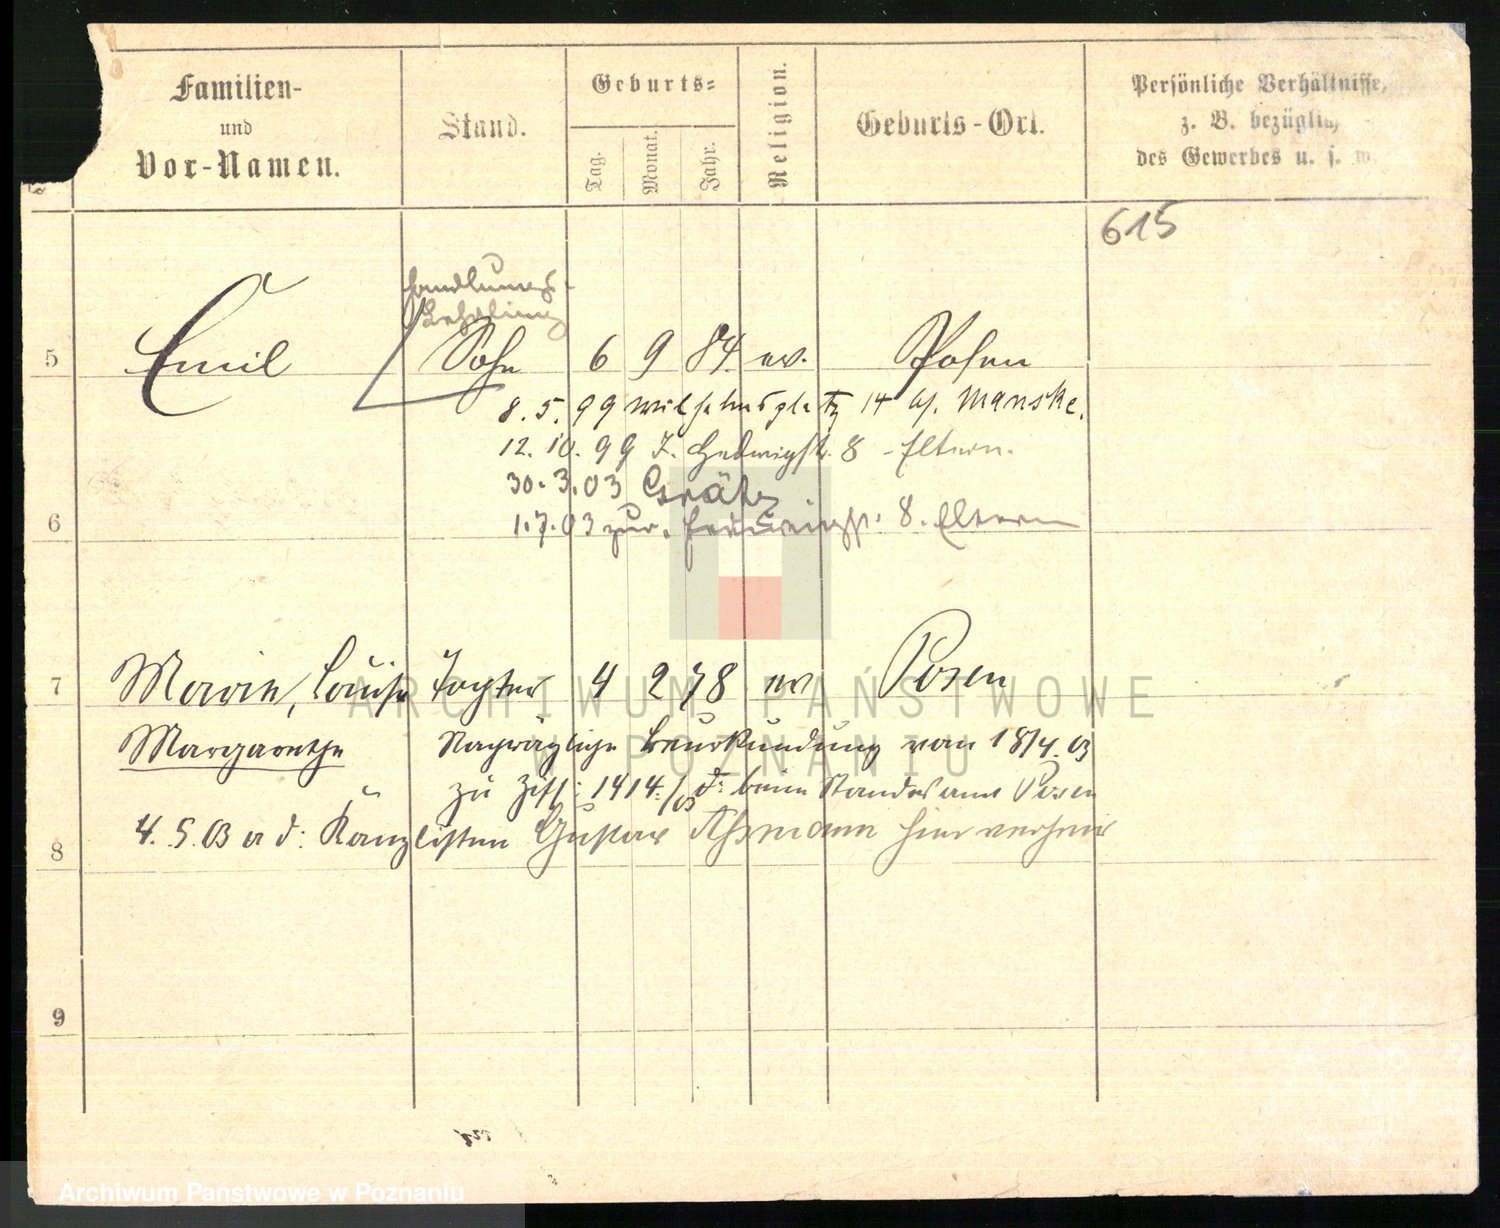 Familien-
und
Vor-Namen.
Stand.
Geburts=
Tag.
Monat.
Jahr.
Religion.
Geburts-Ort.
Persönliche Verhältnisse,
z. B. bezüglich
des Gewerbes u. s. w.
615
Handlungs-
Lehrling
5 Emil Sohn 6 9 84. ev. Posen
8. 5. 99 Wilhelmsplatz 14 b/. Manske.
12. 10. 99 Z. Hedwigstr. 8 - Eltern.
30. 3. 03 Grätz
6
1. 7. 03 zur. Hedwigstr. 8. Eltern
7 Marie, Louise Tochter 4 2 78 ev Posen
ARCHIWUM PAŃSTWOWE
W POZNANIU
Margarethe Nachträgliche Beurkundung vom 18/4. 03
zu Ziff: 1414. /03 d: beim Standesamt Posen
8 4. 5. 03 a d: Kanzlisten Gustav hier verheir
9
Archiwum Państwowe w Poznaniu